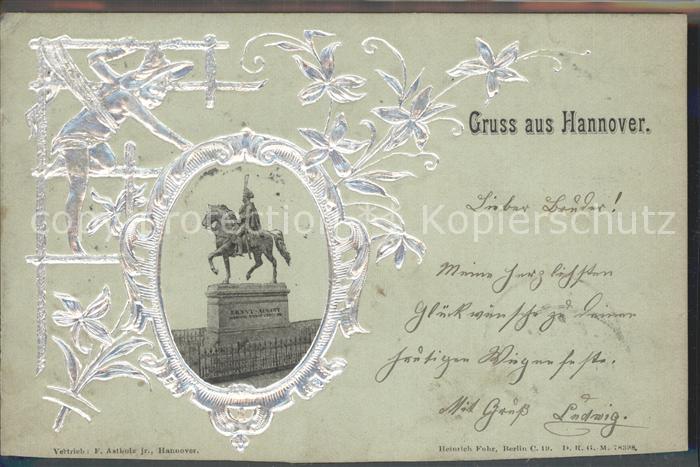 Gruss aus Hannover.
Lieber Bruder!
Meine herzlichsten
Glückwünsche zu deinem
heutigen
Mit Gruß Ludwig.
ERNST AUGUST
copyright protection Kopierschutz
Vertrieb: F. Astholz jr., Hannover.
Heinrich Fuhr, Berlin C. 19. D. R. G. M. 78398.